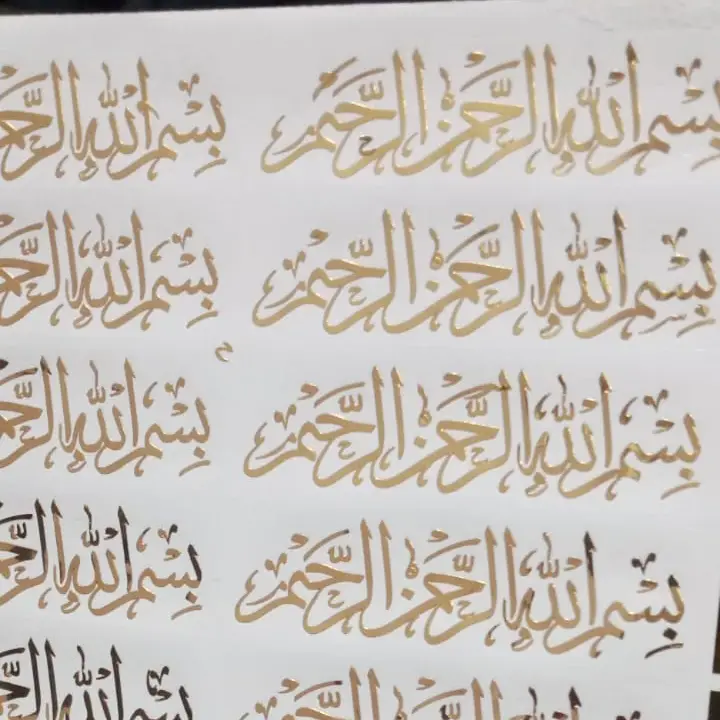 بسم الله الرحمن الرحيم بسم الله
بسم الله الرحمن الرحيم بسم الله
بسم الله الرحمن الرحيم بسم الله
بسم الله الرحمن الرحيم بسم الله
بسم الله